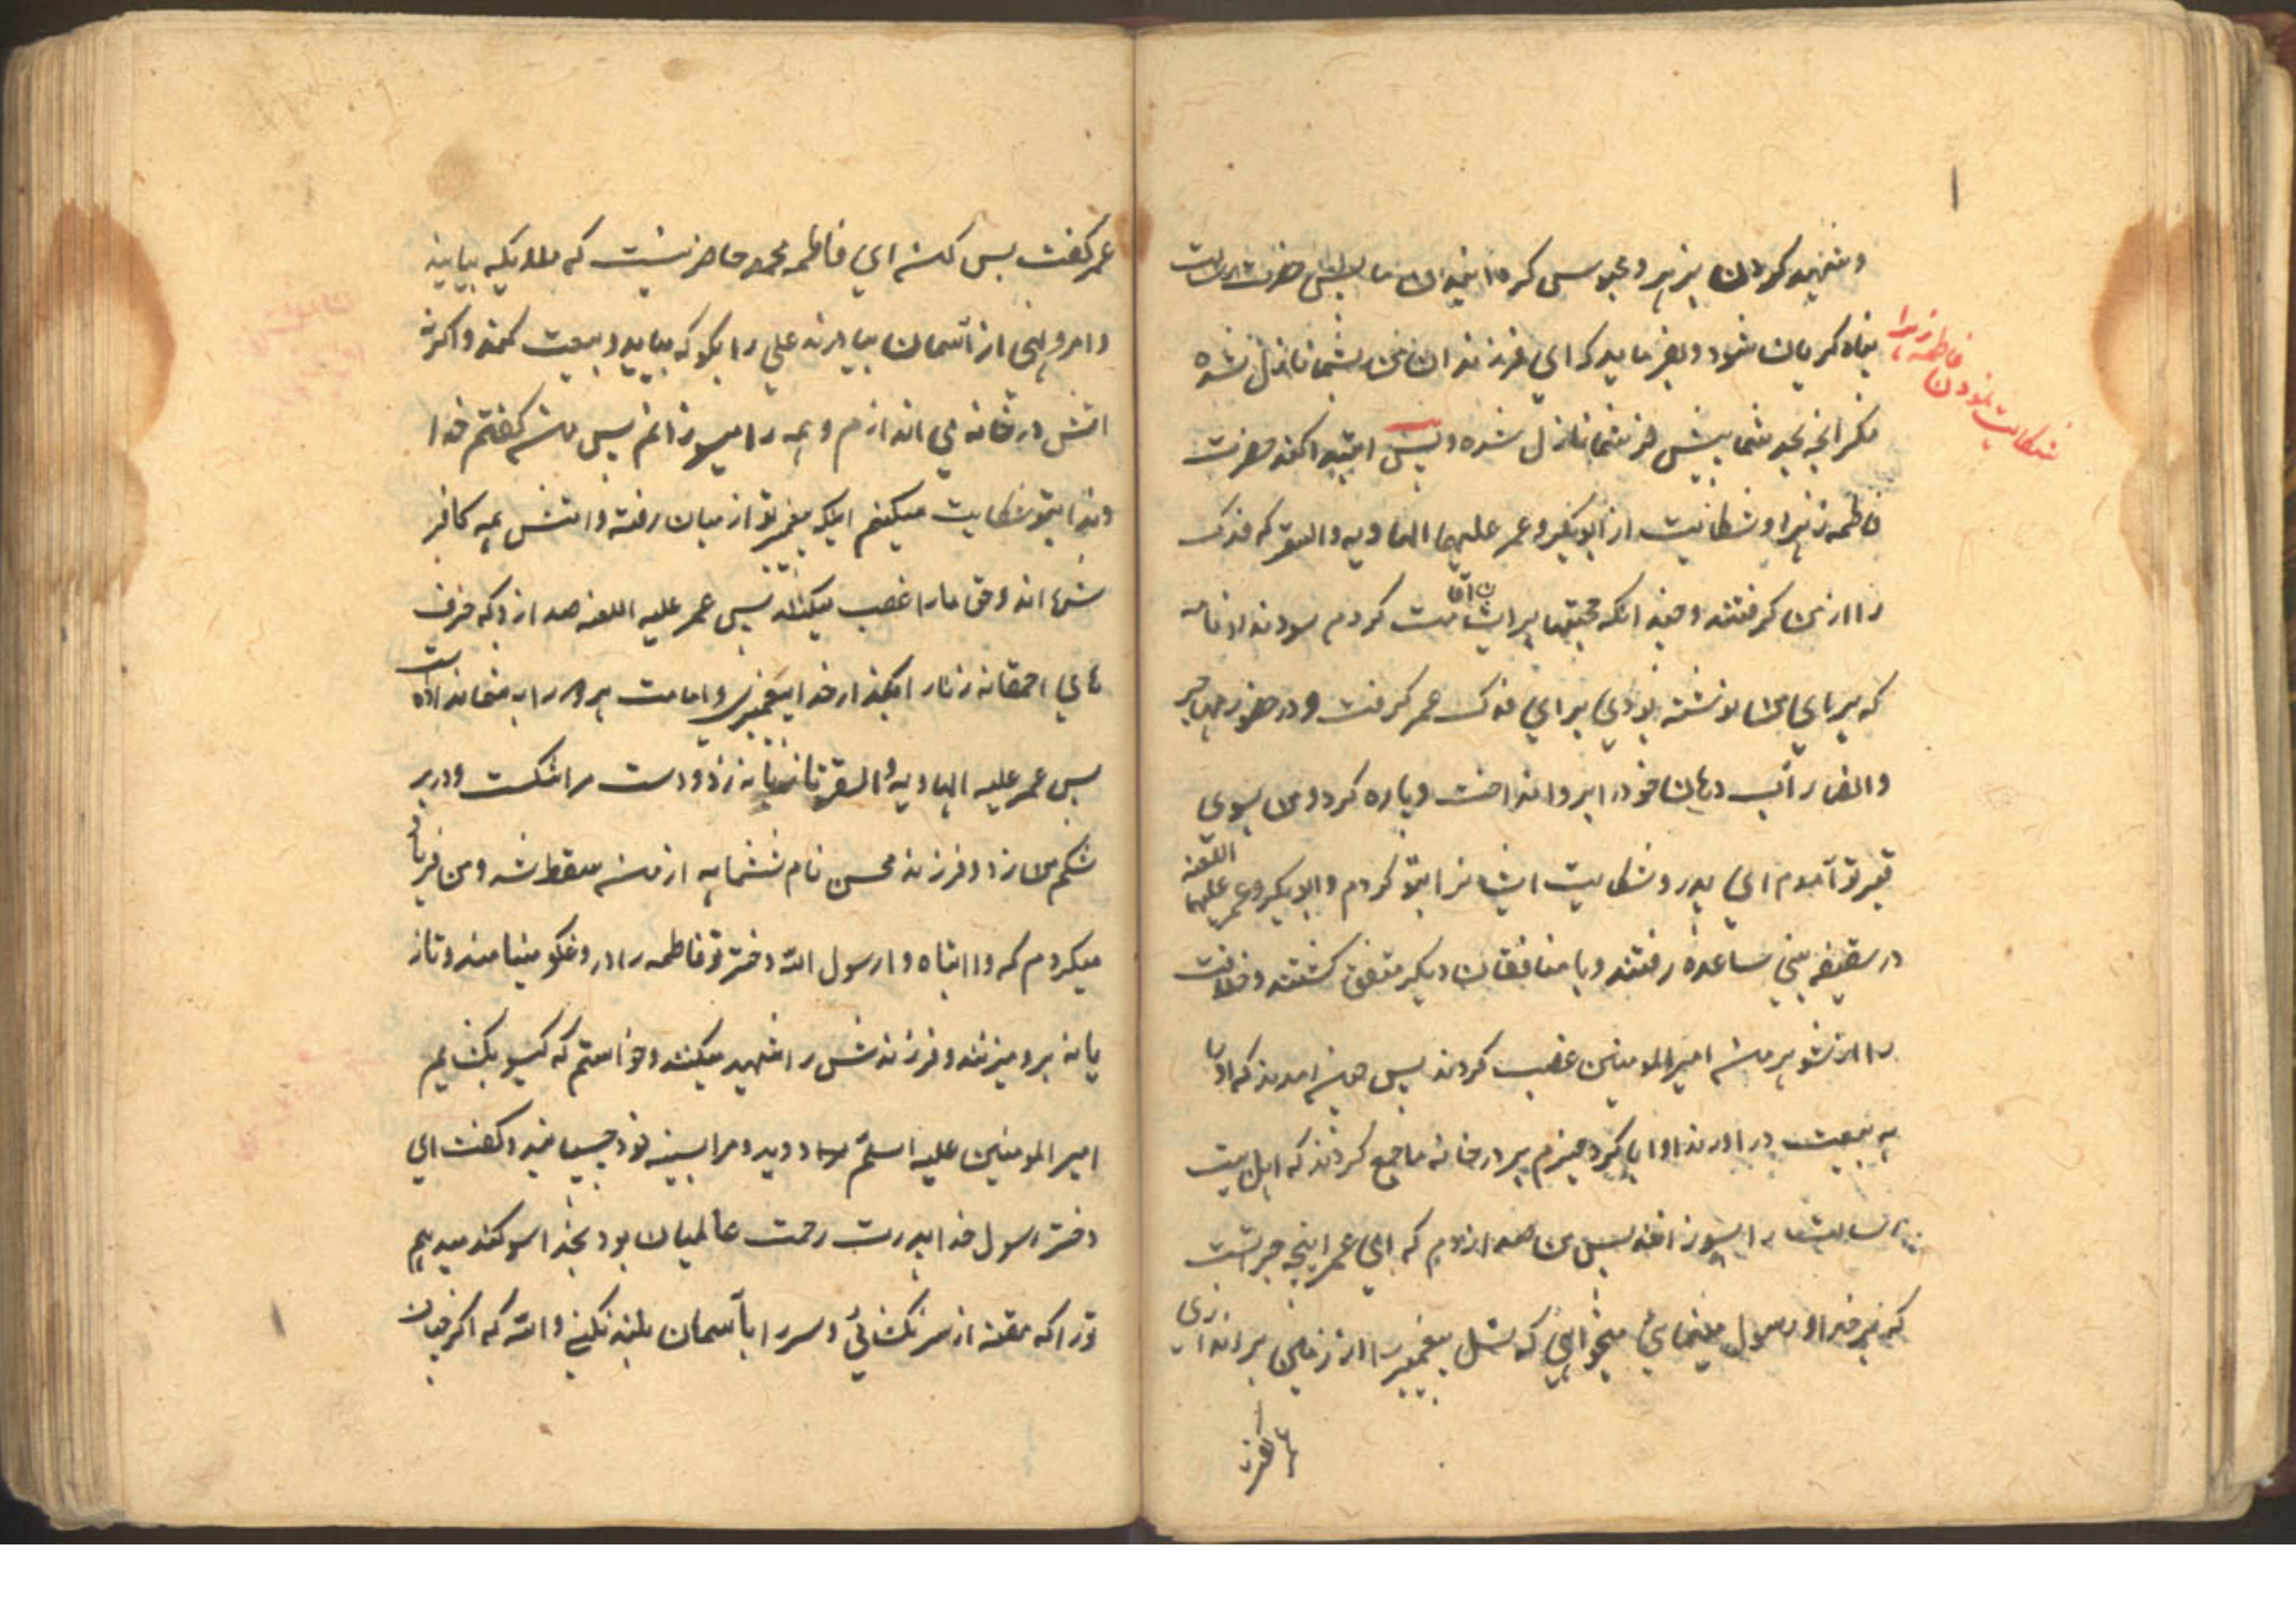 و شهید کردن بزهر و محبوس کردن ایشان پس حضرت رسالت
پناه گریان شود و بفرماید که ای فرزندان من بشما نازل نشده
مگر آنچه بجد شما پیش از شما نازل شده و پس ابتدا کند حضرت
فاطمه زهرا و شکایت از ابوبکر و عمر علیهما الهاویه والسقر که فدک
را از من گرفتند و چند آنکه حجتها بر ایشان اقامت کردم سود نداد نامه
که برای من نوشته بودی برای فدک عمر گرفت و در حضور مهاجر
و انصار آب دهان خود را بر او انداخت و پاره کرد و من بسوی
قبر تو آمدم ای پدر و شکایت ایشانرا بتو کردم و ابوبکر و عمر علیهما اللعنه
در سقیفه بنی ساعده رفتند و با منافقان دیگر متفق گشتند و خلافت
را از شوهر من امیرالمومنین غصب کردند پس آمدند که او را
به بیعت در آورند او ابا کرد هیزم بر در خانه ما جمع کردند که اهل بیت
رسالت را بسوزانند پس من صدا زدم که ای عمر اینچه جرأتست
که بر خدا و رسول مینمائی میخواهی که نسل پیغمبر را از زمین براندازی
شکایت نمودن فاطمه زهرا
عمر گفت بس کن ای فاطمه محمد حاضر نیست که ملایکه بیایند
و امر و نهی از آسمان بیاورند علی را بگو که بیاید و بیعت کند و اگر نه
آتش در خانه می اندازم و همه را میسوزانم پس من گفتم خدا
وندا بتو شکایت میکنم اینکه پیغمبر تو از میان رفته و امتش همه کافر
شده اند و حق ما را غصب میکنند پس عمر علیه اللعنه صدا زد که حرف
های احمقانه زنان را بگذار خدا پیغمبری و امامت هر دو را به شما نداده است
پس عمر علیه الهاویه و السقر تازیانه زد و دست مرا شکست و در بر
شکم من زد و فرزند محسن نام ششماهه از من سقط شد و من فریاد
میکردم که وا ابتاه وا رسول الله دختر تو فاطمه را دروغگو مینامند و تاز
یانه بر او میزنند و فرزندش را شهید میکنند و خواستم که گیسو بگشایم
امیر المومنین علیه اسلم دوید و مرا بسینه خود چسبانید و گفت ای
دختر رسول خدا پدرت رحمت عالمیان بود بخدا سوگند میدهم
ترا که مقنعه از سر نگشائی و سر را بآسمان بلند نکنی والله که اگر چنان